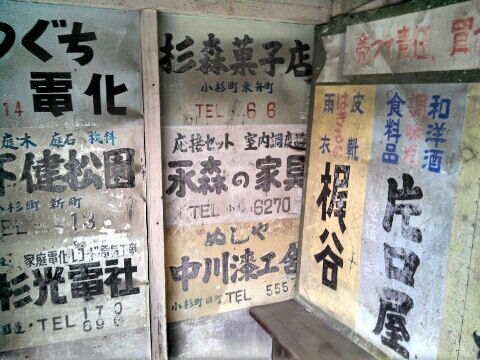 つぐち
電化
14
庭木 庭石 肥料
健松園
小杉町 新町
TEL 13
家庭電化レコード電気工事
杉光電社
TEL 170
696
杉森菓子店
小杉町東舟町
TEL 66
応接セット 室内調度品
永森の家具
TEL 6270
ぬしや
中川漆工舎
小杉町旧町 TEL 555
責任
皮靴
はきもの
雨衣
梶谷
和洋酒
調味料
食料品
片口屋